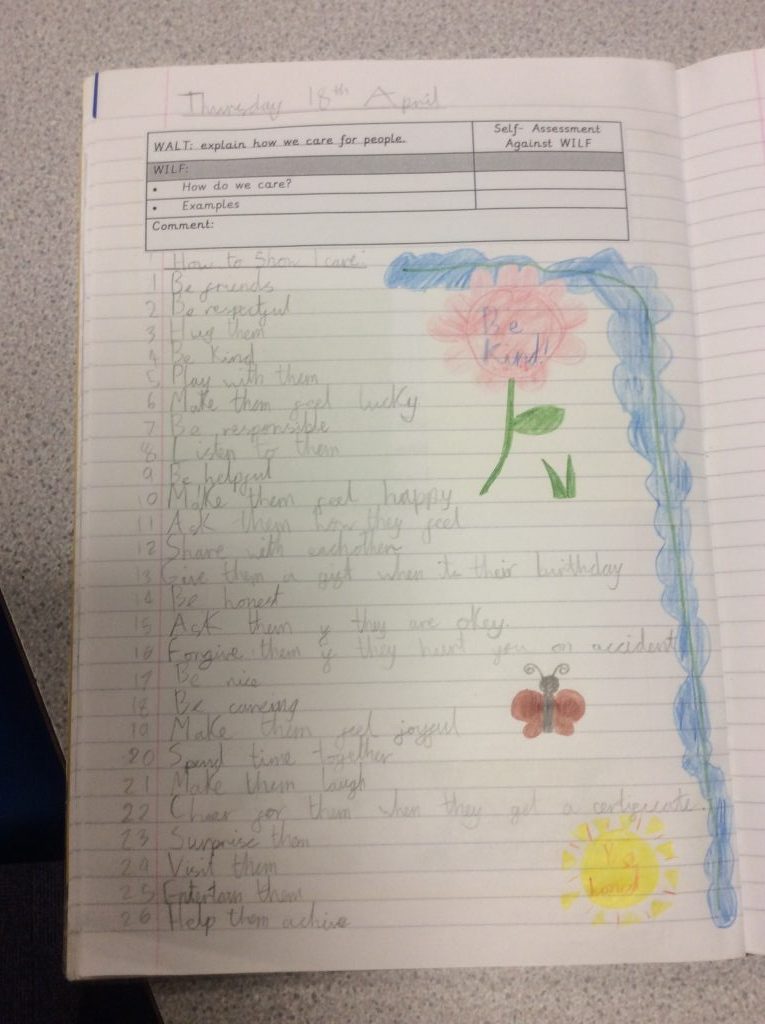 Thursday 18th April
WALT: explain how we care for people.
Self- Assessment
Against WILF
WILF:
• How do we care?
• Examples
Comment:
How to Show I care:
1 Be friends
2 Be respectful
3 Hug them
4 Be Kind
5 Play with them
6 Make them feel lucky
7 Be responsible
8 Listen to them
9 Be helpful
10 Make them feel happy
11 Ask them how they feel
12 Share with eachother
13 Give them a gift when its their birthday
14 Be honest
15 Ask them if they are okey.
16 Forgive them if they hurt you on accident
17 Be nice
18 Be careing
19 Make them feel joyful
20 Spend time together
21 Make them laugh
22 Cheer for them when they get a certificate.
23 Surprise them
24 Visit them
25 Entertain them
26 Help them achive
Be
Kind!
Be
honest